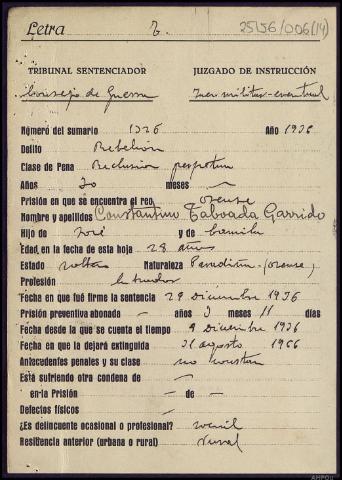 Letra T. 25156/006(14)
TRIBUNAL SENTENCIADOR JUZGADO DE INSTRUCCIÓN
Consejo de Guerra Juez militar-eventual
Número del sumario 1326 Año 1936
Delito Rebelión
Clase de Pena Reclusión perpetua
Años 30 meses —
Prisión en que se encuentra el reo, orense
Nombre y apellidos Constantino Taboada Garrido
Hijo de José y de Camila
Edad, en la fecha de esta hoja 28 años
Estado soltero Naturaleza (orense)
Profesión labrador
Fecha en que fué firme la sentencia 29 Diciembre 1936
Prisión preventiva abonada — años 3 meses 11 días
Fecha desde la que se cuenta el tiempo 9 Diciembre 1936
Fecha en que la dejará extinguida 31 agosto 1966
Antecedentes penales y su clase no constan
Está sufriendo otra condena de —
en la Prisión — de —
Defectos físicos —
¿Es delincuente ocasional o profesional?
Residencia anterior (urbana o rural) rural
AHPOU